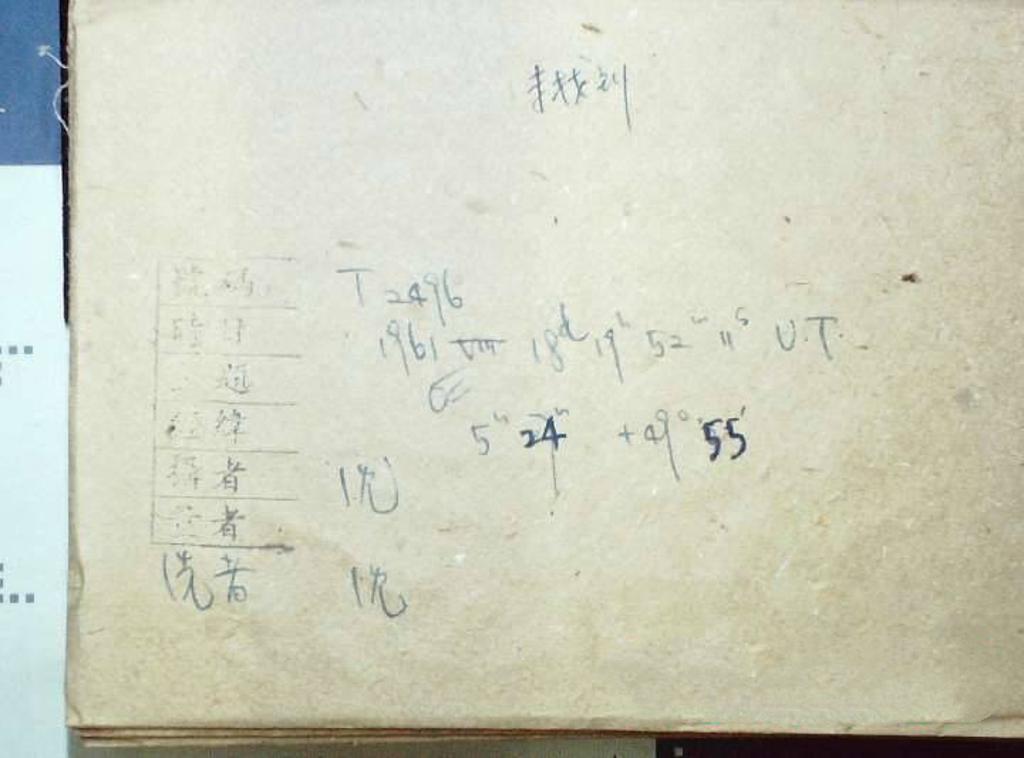 號碼 T 2496
1961 VIII 18d 19h 52m 11s U.T.
題
經緯 5h 24m +49° 55′
者 沈
者
洗者 沈